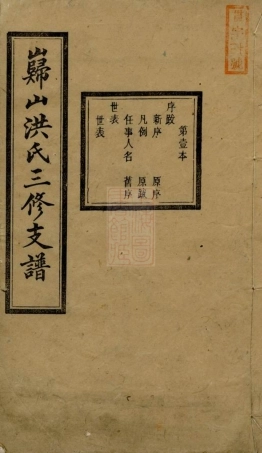 巋山洪氏三修支譜
第壹本
序跋
新序 原序
凡例 原跋
任事人名 舊序
世表
世表